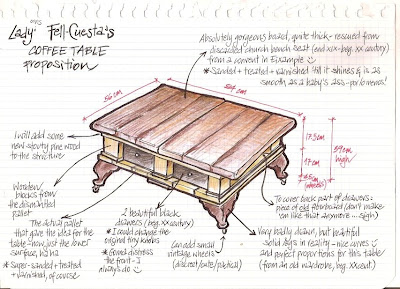 Lady Fell-Cuesta's
COFFEE TABLE
proposition
Absolutely gorgeous board, quite thick - rescued from
discarded church bench seat (end XIX-beg. XX century)
from a convent in Eixample
* Sanded + treated + varnished till it shines & is as
smooth as a baby's ass - por lo menos!
56 cm
84 cm
17.5cm
17cm
39cm
high
I will add some
new stouty pine wood
to the structure
Wooden
blocks from
the dismantled
pallet
The actual pallet
that gave the idea for the
table - now just the lower
surface, ha ha
* Super-sanded + treated
+ varnished, of course
2 beautiful black
drawers (beg. XX century)
* I could change the
original tiny knobs
* Gonna distress
the front - I
always do
Can add small
vintage wheels
(discreet/cute/practical)
To cover back part of drawers:
piece of old floorboard don't make
'em like that anymore - sigh)
Very badly drawn, but beautiful
solid legs in reality - nice curves
and perfect proportions for this table
(from an old wardrobe, beg. XX cent.)